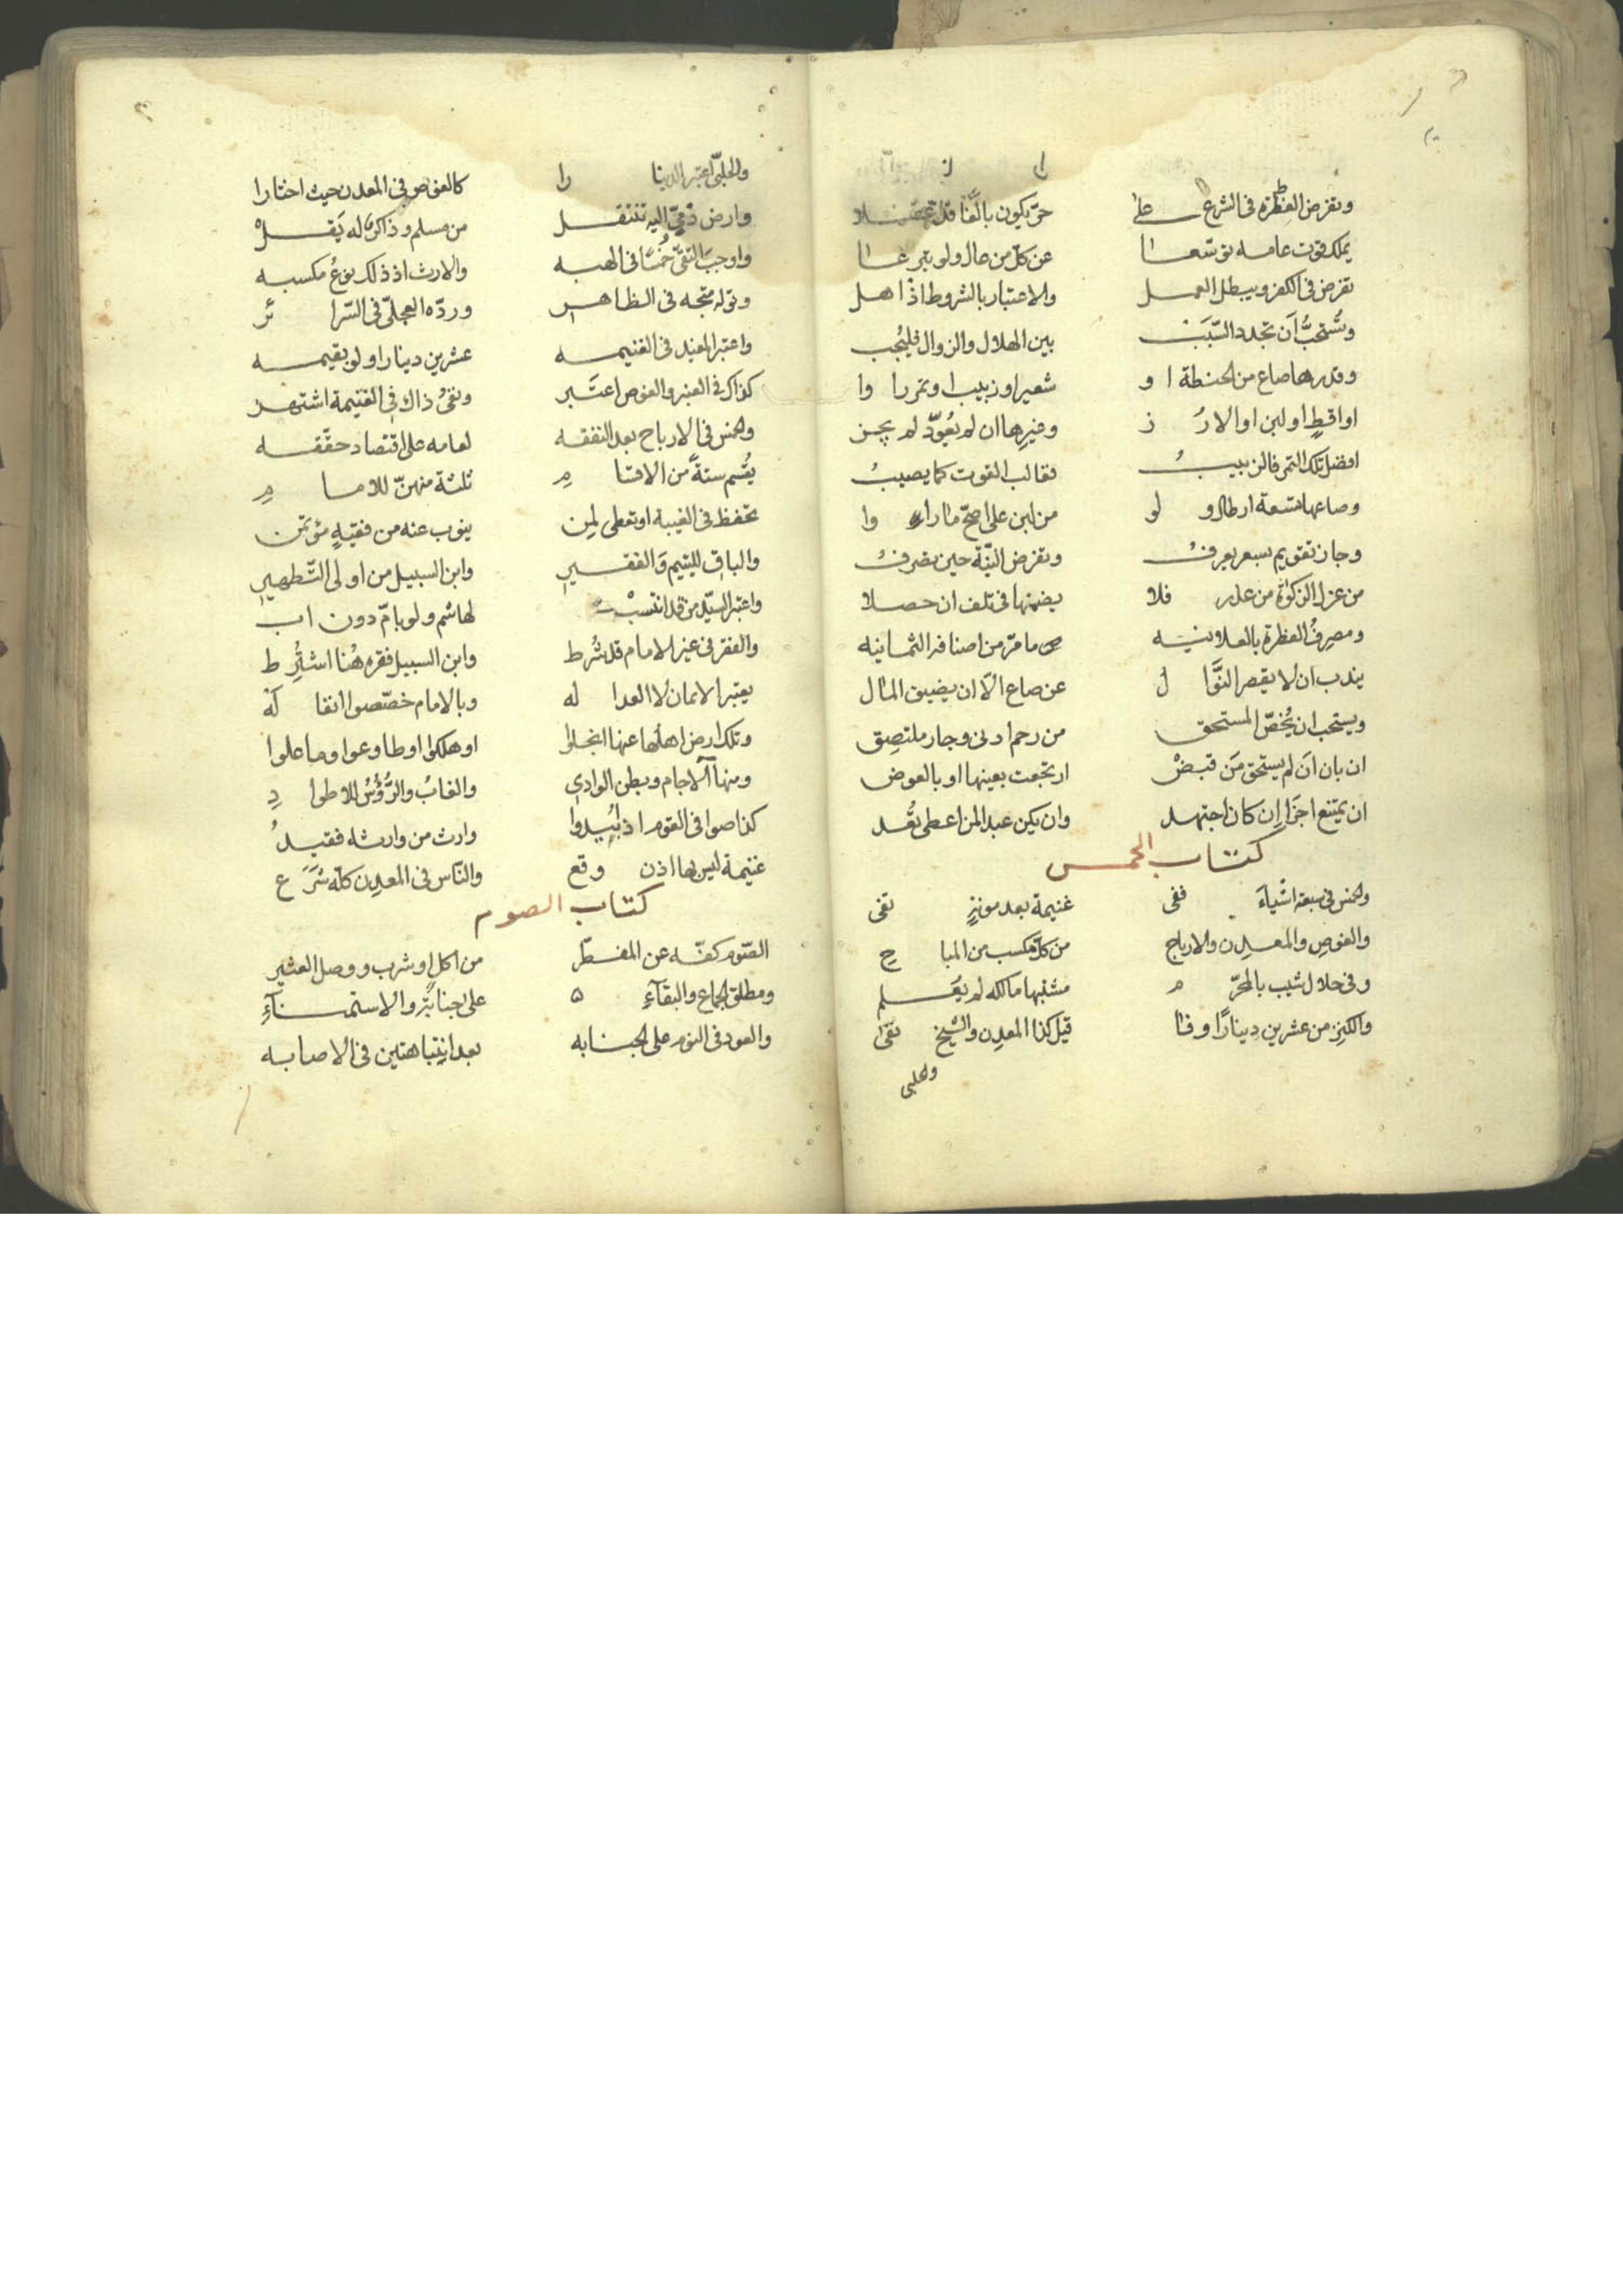 وتفرض الفطرة في الشرع على حرّ يكون بالغا قد عقلا
يملك قوت عامه توسّعا عن كلّ من عال ولو تبرعا
تفرض في الكفر ويبطل العمل والاعتبار بالشروط اذ اهل
ويُستحبُّ أن تجدد السّبب بين الهلال والزوال فليُجب
وقدرها صاع من الحنطة او شعيرا وزبيب او تمر راوا
او اقطٍ او لبن او الارُز وغيرها ان لم يُعوّد لم يجز
افضل تلك التمر فالزبيبُ فغالب القوت كما يصيبُ
وصاعها تسعة ارطال ولو من لبن على اصحّ ما راوا
وجاز تقويم بسعر يعرفُ وتفرض النيّة حين تصرفُ
من عزل الزكوة من عذر فلا يضمنها في تلف ان حصلا
ومصرفُ الفطرة بالعلانيه ما مرّ من اصنافه الثمانيه
يندب ان لا يقصر النوَّال عن صاع الّا ان يضيق المال
ويستحب ان يُخصّ المستحق من رحم ادنى وجار ملتصِق
ان بان أن لم يستحق مَن قبضْ ارتجعت بعينها او بالعوض
ان يمتنع اجزا إن كان اجتهد وان يكن عبد المن اعطى تُعد
كتاب الخمس
والخمس في سبعة اشياءَ ففى غنيمة بعد مونةٍ تفى
والغوص والمعدِن والارباح من كلّ مكسب من المباح
وفي حلال شيب بالمحرّم مشتبها مالكه لم يُعلم
والكنز من عشرين دينارًا وفا قيل كذا المعدِن والشيخ نفى
والحلبي
والحلبيّ اعتبر الدينارا كالغوص في المعدن حيث اختارا
وارض ذمّيّ اليه تنتقل من مسلم وذاكروه له يَقل
واوجبَ التقيّ خُمسًا في الهبه والارث اذ ذلك نوعُ مكسبه
وقوله متّجه في الظاهر وردّه العجليّ في السّرائر
واعتبر المفيد في الغنيمه عشرين دينارا ولو بقيمه
كذاك في العنبر والغوص اعتَبر ونفىُ ذاك في الغنيمة اشتهر
والخمس في الارباح بعد النفقه لعامه على اقتصاد حقّقه
يُقسم ستةً من الاقسام ثلثة منهنّ للامام
تحفظ في الغيبة او تعطى لِمن ينوب عنه من فقيهٍ مؤتمن
والباقِ لليتيم وَالفقيرِ وابن السبيل من اولى التّطهيرِ
واعتبر السيّد من قد انتسبْ لهاشم ولو بامّ دون اب
والفقر في غير الامام قد شُرط وابن السبيل فقره هُنا اشتُرِط
يعتبر الايمان لا العداله وبالامام خصّصوا انفالَه
وتلك ارض اهلُها عنها انجلوا او هلكوا او طاوعوا وما علوا
ومنها الآجام وبطن الوادي والغابُ والرُّؤُسُ للاطوادِ
كذا صوافي القوم اذ ابُيدوا وارث من وارثه فقيدُ
غنيمة ليس بها اذن وقع والنّاس في المعدِن كلّه شَرَع
كتاب الصوم
الصّوم كفّه عن المفطّر من اكلٍ او شرب ووصل العثير
ومطلق الجماع والبقآءِ على جنابةٍ والاستمنآءِ
والعود في النوم على الجنابه بعد انتباهتين في الاصابه